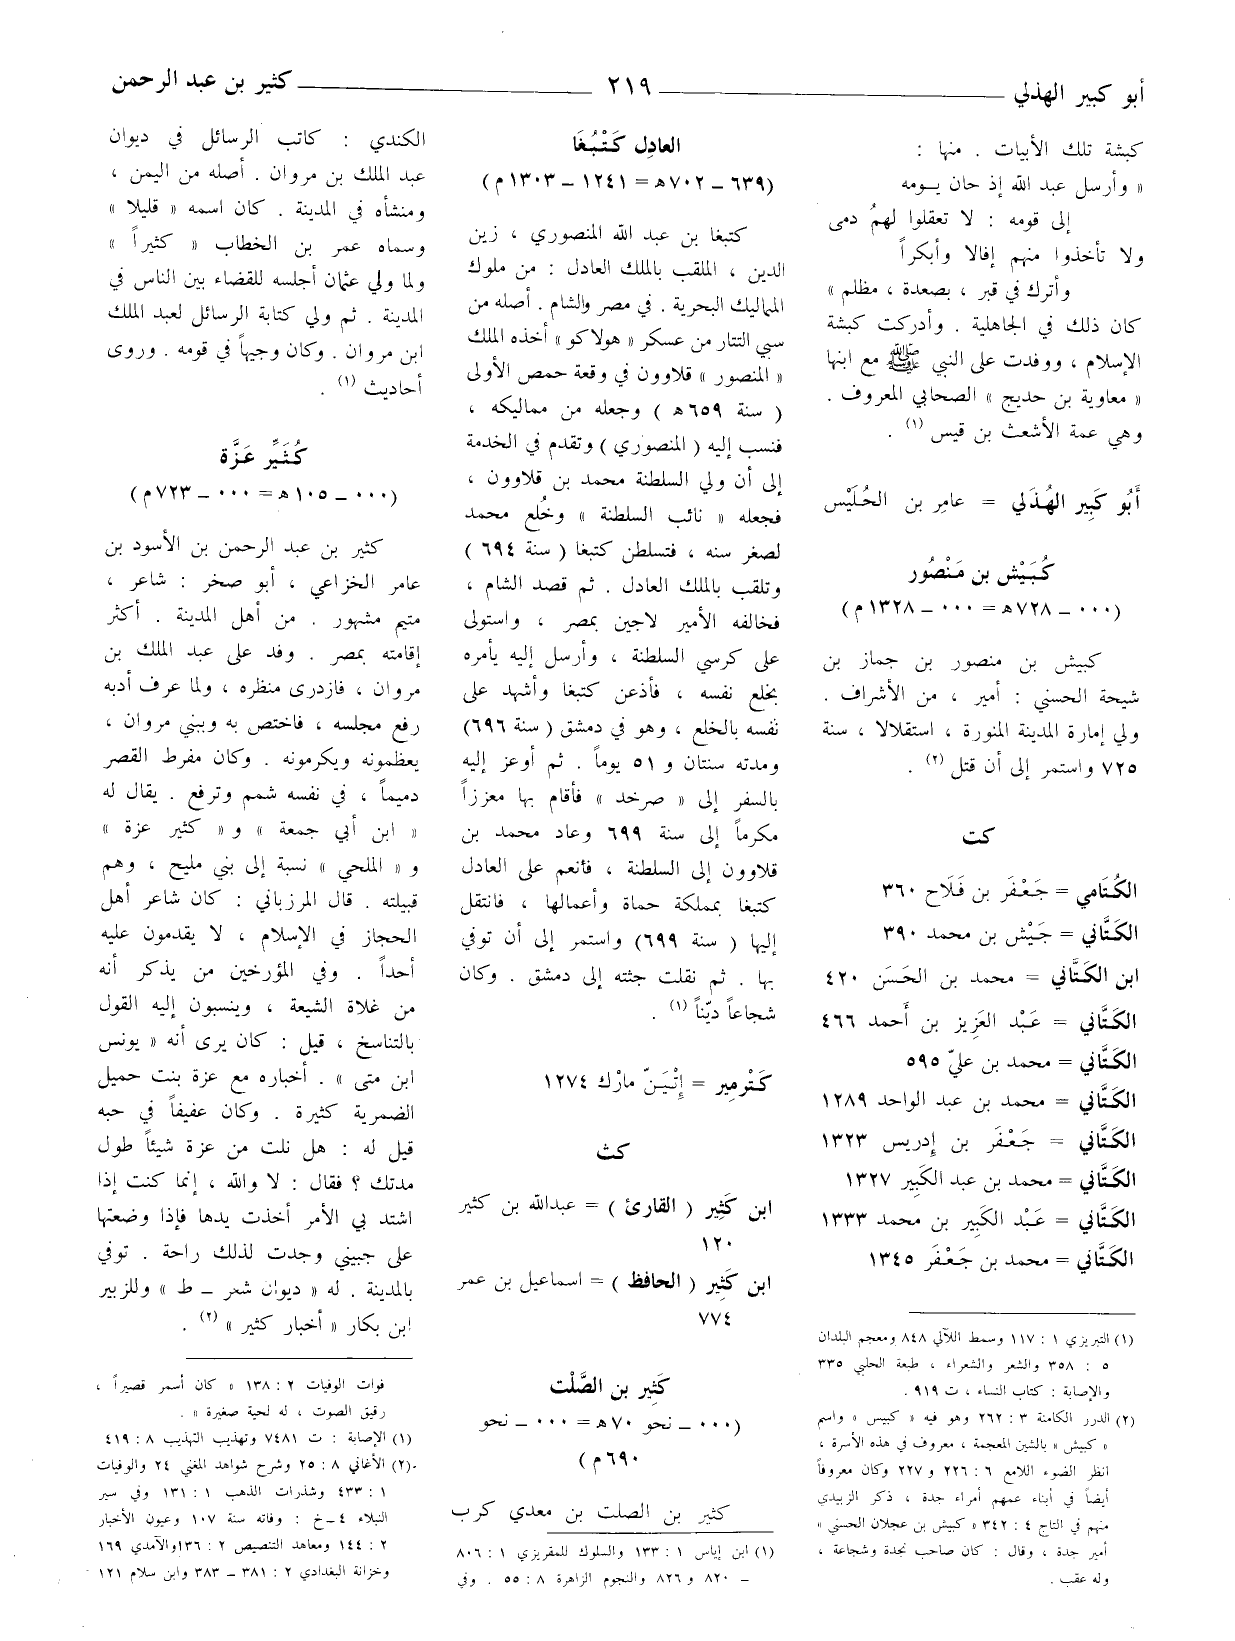 أبو كبير الهذلي ٢١٩ كثير بن عبد الرحمن
كبشة تلك الأبيات . منها :
« وأرسل عبد الله إذ حان يومه
إلى قومه : لا تعقلوا لهمُ دمى
ولا تأخذوا منهم إفالا وأبكراً
وأترك في قبر ، بصعدة ، مظلم »
كان ذلك في الجاهلية . وأدركت كبشة
الإسلام ، ووفدت على النبي ﷺ مع ابنها
« معاوية بن حديج » الصحابي المعروف .
وهي عمة الأشعث بن قيس (١) .
أَبُو كَبِير الهُذَلي = عامِر بن الحُلَيْس
كُبَيْش بن مَنْصُور
(٠٠٠ ــ ٧٢٨ هـ = ٠٠٠ ــ ١٣٢٨ م)
كبيش بن منصور بن جماز بن
شيحة الحسني : أمير ، من الأشراف .
ولي إمارة المدينة المنورة ، استقلالا ، سنة
٧٢٥ واستمر إلى أن قتل (٢) .
كت
الكُتَامي = جَعْفَر بن فَلَاح ٣٦٠
الكَتَّاني = جَيْش بن محمد ٣٩٠
ابن الكَتَّاني = محمد بن الحَسَن ٤٢٠
الكَتَّاني = عَبْد العَزِيز بن أَحمد ٤٦٦
الكَتَّاني = محمد بن عليّ ٥٩٥
الكَتَّاني = محمد بن عبد الواحد ١٢٨٩
الكَتَّاني = جَعْفَر بن إدريس ١٣٢٣
الكَتَّاني = محمد بن عبد الكَبِير ١٣٢٧
الكَتَّاني = عَبْد الكَبِير بن محمد ١٣٣٣
الكَتَّاني = محمد بن جَعْفَر ١٣٤٥
(١) التبريزي ١ : ١١٧ وسمط اللآلي ٨٤٨ ومعجم البلدان
٥ : ٣٥٨ والشعر والشعراء ، طبعة الحلبي ٣٣٥
والإصابة : كتاب النساء ، ت ٩١٩ .
(٢) الدرر الكامنة ٣ : ٢٦٢ وهو فيه « كبيس » واسم
« كبيش » بالشين المعجمة ، معروف في هذه الأسرة ،
انظر الضوء اللامع ٦ : ٢٢٦ و ٢٢٧ وكان معروفاً
أيضاً في أبناء عمهم أمراء جدة ، ذكر الزبيدي
منهم في التاج ٤ : ٣٤٢ « كبيش بن عجلان الحسني »
أمير جدة ، وقال : كان صاحب نجدة وشجاعة ،
وله عقب .
العادِل كَتْبُغَا
(٦٣٩ ــ ٧٠٢ هـ = ١٢٤١ ــ ١٣٠٣ م)
كتبغا بن عبد الله المنصوري ، زين
الدين ، الملقب بالملك العادل : من ملوك
المماليك البحرية . في مصر والشام . أصله من
سبي التتار من عسكر « هولاكو » أخذه الملك
« المنصور » قلاوون في وقعة حمص الأولى
( سنة ٦٥٩ هـ ) وجعله من مماليكه ،
فنسب إليه ( المنصوري ) وتقدم في الخدمة
إلى أن ولي السلطنة محمد بن قلاوون ،
فجعله « نائب السلطنة » وخُلع محمد
لصغر سنه ، فتسلطن كتبغا ( سنة ٦٩٤ )
وتلقب بالملك العادل . ثم قصد الشام ،
فخالفه الأمير لاجين بمصر ، واستولى
على كرسي السلطنة ، وأرسل إليه يأمره
بخلع نفسه ، فأذعن كتبغا وأشهد على
نفسه بالخلع ، وهو في دمشق ( سنة ٦٩٦)
ومدته سنتان و ٥١ يوماً . ثم أوعز إليه
بالسفر إلى « صرخد » فأقام بها معززاً
مكرماً إلى سنة ٦٩٩ وعاد محمد بن
قلاوون إلى السلطنة ، فأنعم على العادل
كتبغا بمملكة حماة وأعمالها ، فانتقل
إليها ( سنة ٦٩٩) واستمر إلى أن توفي
بها . ثم نقلت جثته إلى دمشق . وكان
شجاعاً ديّناً (١) .
كَتْرمِير = إِتْيَنّ مارْك ١٢٧٤
كث
ابن كَثِير ( القارئ ) = عبدالله بن كثير
١٢٠
ابن كَثِير ( الحافظ ) = اسماعيل بن عمر
٧٧٤
كَثِير بن الصَّلْت
(٠٠٠ ــ نحو ٧٠ هـ = ٠٠٠ ــ نحو
٦٩٠ م)
كثير بن الصلت بن معدي كرب
(١) ابن إياس ١ : ١٣٣ والسلوك للمقريزي ١ : ٨٠٦
ــ ٨٢٠ و ٨٢٦ والنجوم الزاهرة ٨ : ٥٥ . وفي
الكندي : كاتب الرسائل في ديوان
عبد الملك بن مروان . أصله من اليمن ،
ومنشأه في المدينة . كان اسمه « قليلا »
وسماه عمر بن الخطاب « كثيراً »
ولما ولي عثمان أجلسه للقضاء بين الناس في
المدينة . ثم ولي كتابة الرسائل لعبد الملك
ابن مروان . وكان وجيهاً في قومه . وروى
أحاديث (١) .
كُثَيِّر عَزَّة
(٠٠٠ ــ ١٠٥ هـ = ٠٠٠ ــ ٧٢٣ م)
كثير بن عبد الرحمن بن الأسود بن
عامر الخزاعي ، أبو صخر : شاعر ،
متيم مشهور . من أهل المدينة . أكثر
إقامته بمصر . وفد على عبد الملك بن
مروان ، فازدرى منظره ، ولما عرف أدبه
رفع مجلسه ، فاختص به وببني مروان ،
يعظمونه ويكرمونه . وكان مفرط القصر
دميماً ، في نفسه شمم وترفع . يقال له
« ابن أبي جمعة » و « كثير عزة »
و « الملحي » نسبة إلى بني مليح ، وهم
قبيلته . قال المرزباني : كان شاعر أهل
الحجاز في الإسلام ، لا يقدمون عليه
أحداً . وفي المؤرخين من يذكر أنه
من غلاة الشيعة ، وينسبون إليه القول
بالتناسخ ، قيل : كان يرى أنه « يونس
ابن متى » . أخباره مع عزة بنت حميل
الضمرية كثيرة . وكان عفيفاً في حبه
قيل له : هل نلت من عزة شيئاً طول
مدتك ؟ فقال : لا والله ، إنما كنت إذا
اشتد بي الأمر أخذت يدها فإذا وضعتها
على جبيني وجدت لذلك راحة . توفي
بالمدينة . له « ديوان شعر ــ ط » وللزبير
ابن بكار « أخبار كثير » (٢) .
فوات الوفيات ٢ : ١٣٨ « كان أسمر قصيراً ،
رقيق الصوت ، له لحية صغيرة » .
(١) الإصابة : ت ٧٤٨١ وتهذيب التهذيب ٨ : ٤١٩
(٢) الأغاني ٨ : ٢٥ وشرح شواهد المغني ٢٤ والوفيات
١ : ٤٣٣ وشذرات الذهب ١ : ١٣١ وفي سير
النبلاء ٤ ــ خ : وفاته سنة ١٠٧ وعيون الأخبار
٢ : ١٤٤ ومعاهد التنصيص ٢ : ١٣٦ والآمدي ١٦٩
وخزانة البغدادي ٢ : ٣٨١ ــ ٣٨٣ وابن سلام ١٢١